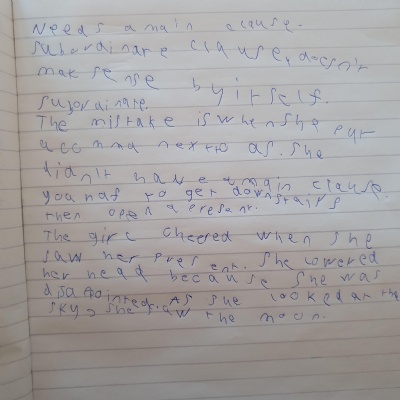 Needs a main clause.
Subordinare clause, doesn't
make sense by itself.
subordinate.
The mistake is when she put
accmma next to as. She
didn't have a main clause.
you haf to get downstairs
then open a present.
The girl cheered when she
saw her present. She lowered
her head because she was
disapointed. As she looked at the
sky, she saw the moon.